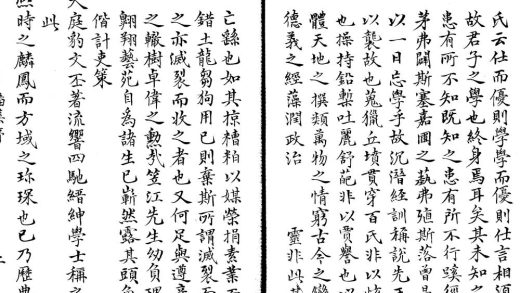 氏云仕而優則學學而優則仕言相須
故君子之學也終身焉耳矣其未知之
患有所不知既知之患有所不行蹊徑
茅弗闢斯塞嘉圃之蓺弗殖斯落曾是
以一日忘學乎故沉潛經訓稱説先王
以襲故也蒐獵丘墳貫穿百氏非以
也操持鉛槧吐麗舒葩非以賈譽也
體天地之撰類萬物之情窮古今之變
德義之經藻潤政治 靈非此其
亡繇也如其掠糟粕以媒榮捐素業
錯土龍芻狗用已則棄斯所謂滅裂而
之亦滅裂而收之者也又何足與遵
之轍樹卓偉之勳哉笠江先生幼負
翱翔藝苑自為諸生已嶄然露其頭角
偕計吏策
大庭豹文丕著流響四馳縉紳學士稱之
此
熙時之麟鳳而方域之珎琛也已乃歷典